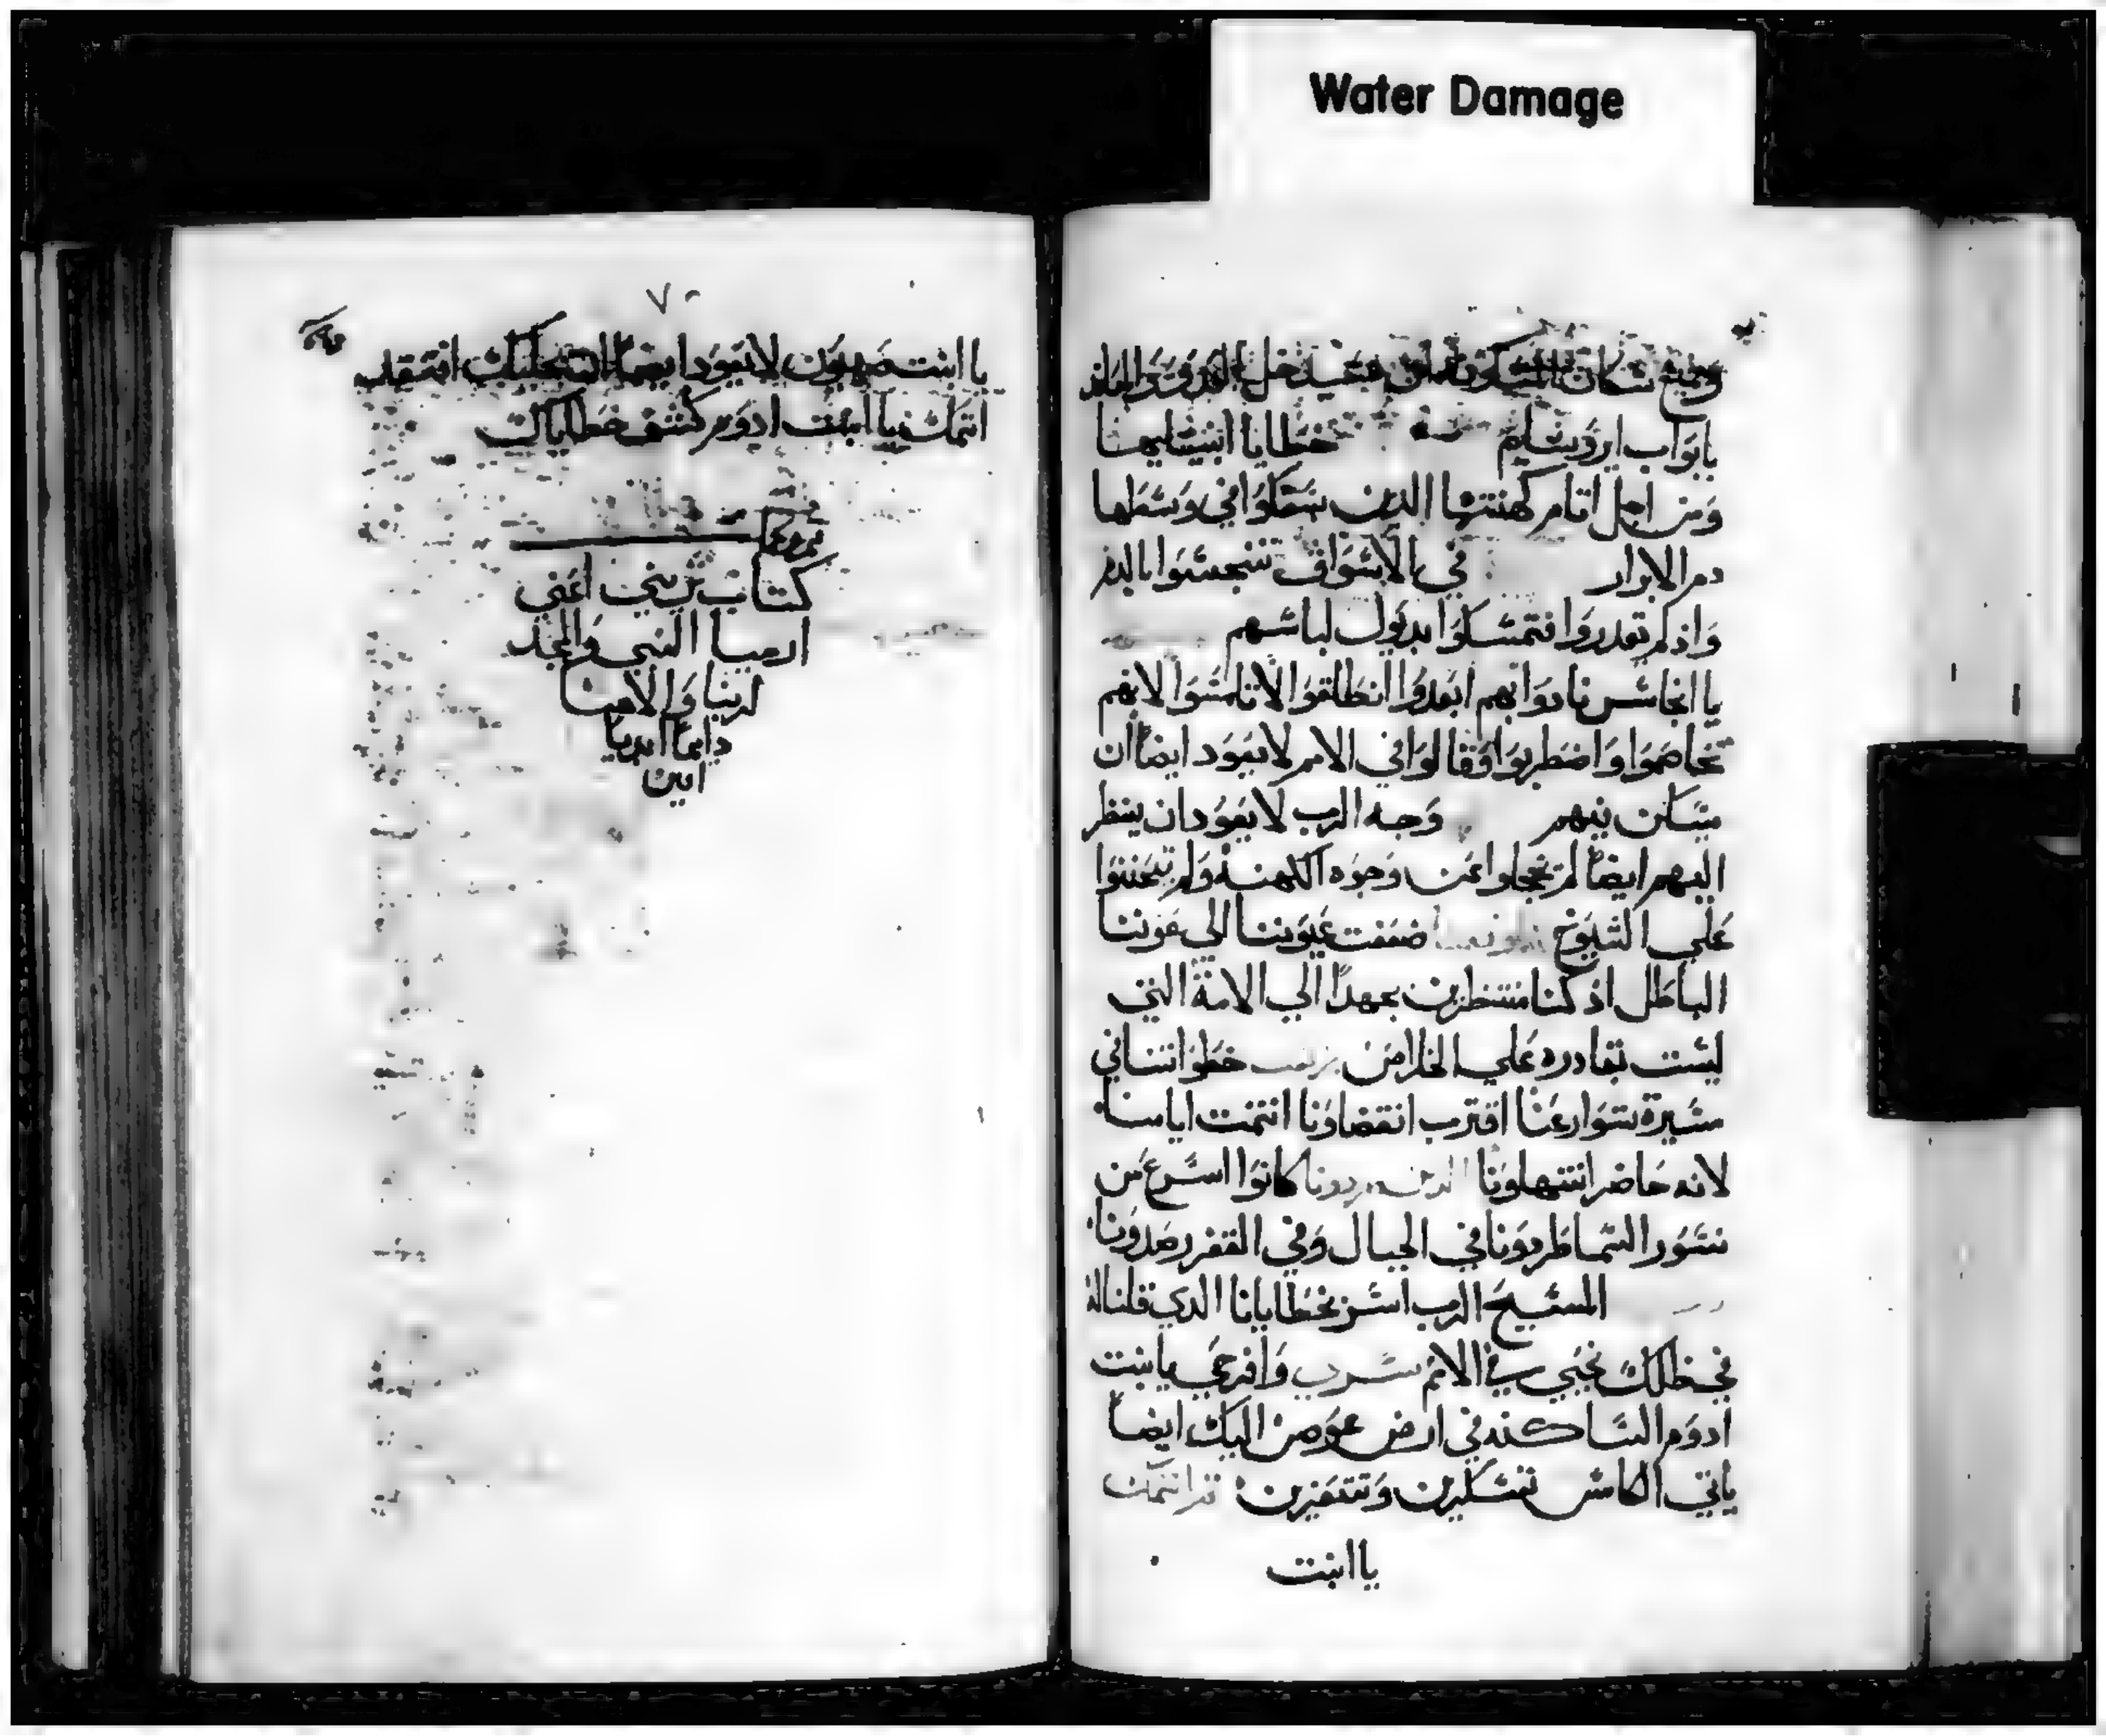 Water Damage
وجميع سكان المسكونة ان يدخل العدو والمعاند
بابواب ايروشليم خطايا انبيايها
ومن اجل اتام كهنتها الدين سفكوا في وسطها
دم الابرار في الاسواق تنجسوا بالدم
واذ لم تقدروا فتمسكوا بديول لباسهم
يا انجاس نادوا بهم ابعدوا انطلقوا لا تلمسوا لانهم
تخاصموا واضطربوا وقالوا في الامم لا يعود ايضا ان
يسكن فيهم وجه الرب لا يعود ان ينظر
اليهم ايضا لم يخجلوا عن وجوه الكهنة ولم يتحننوا
على الشيوخ ضعفت عيوننا الي عوننا
الباطل اذ كنا منتظرين بجهدا الي الامة التي
ليست بقادره علي الخلاص خطواتنا في
مسيرة شوارعنا اقترب انقضاونا انتمت ايامنا
لانه حاضر انتهاونا كانوا اسرع من
نسور السما طردونا في الجبال وفي القفر رصدونا
المسيح الرب اسر بخطايانا الدي قلنا له
في ظلك نحيي في الامم سري وافرحي يا بنت
ادوم الساكنه في ارض عوص اليك ايضا
ياتي الكاس تتسكرين وتتقيين
يا ابنت
٧٠
يا ابنت صهيون لا يعود ايضا افتقد
اتمك يا ابنت ادوم كشف خطاياك
كتاب اعني
ارميا النبي والمجد
لربنا والاهنا
دايما ابديا
امين